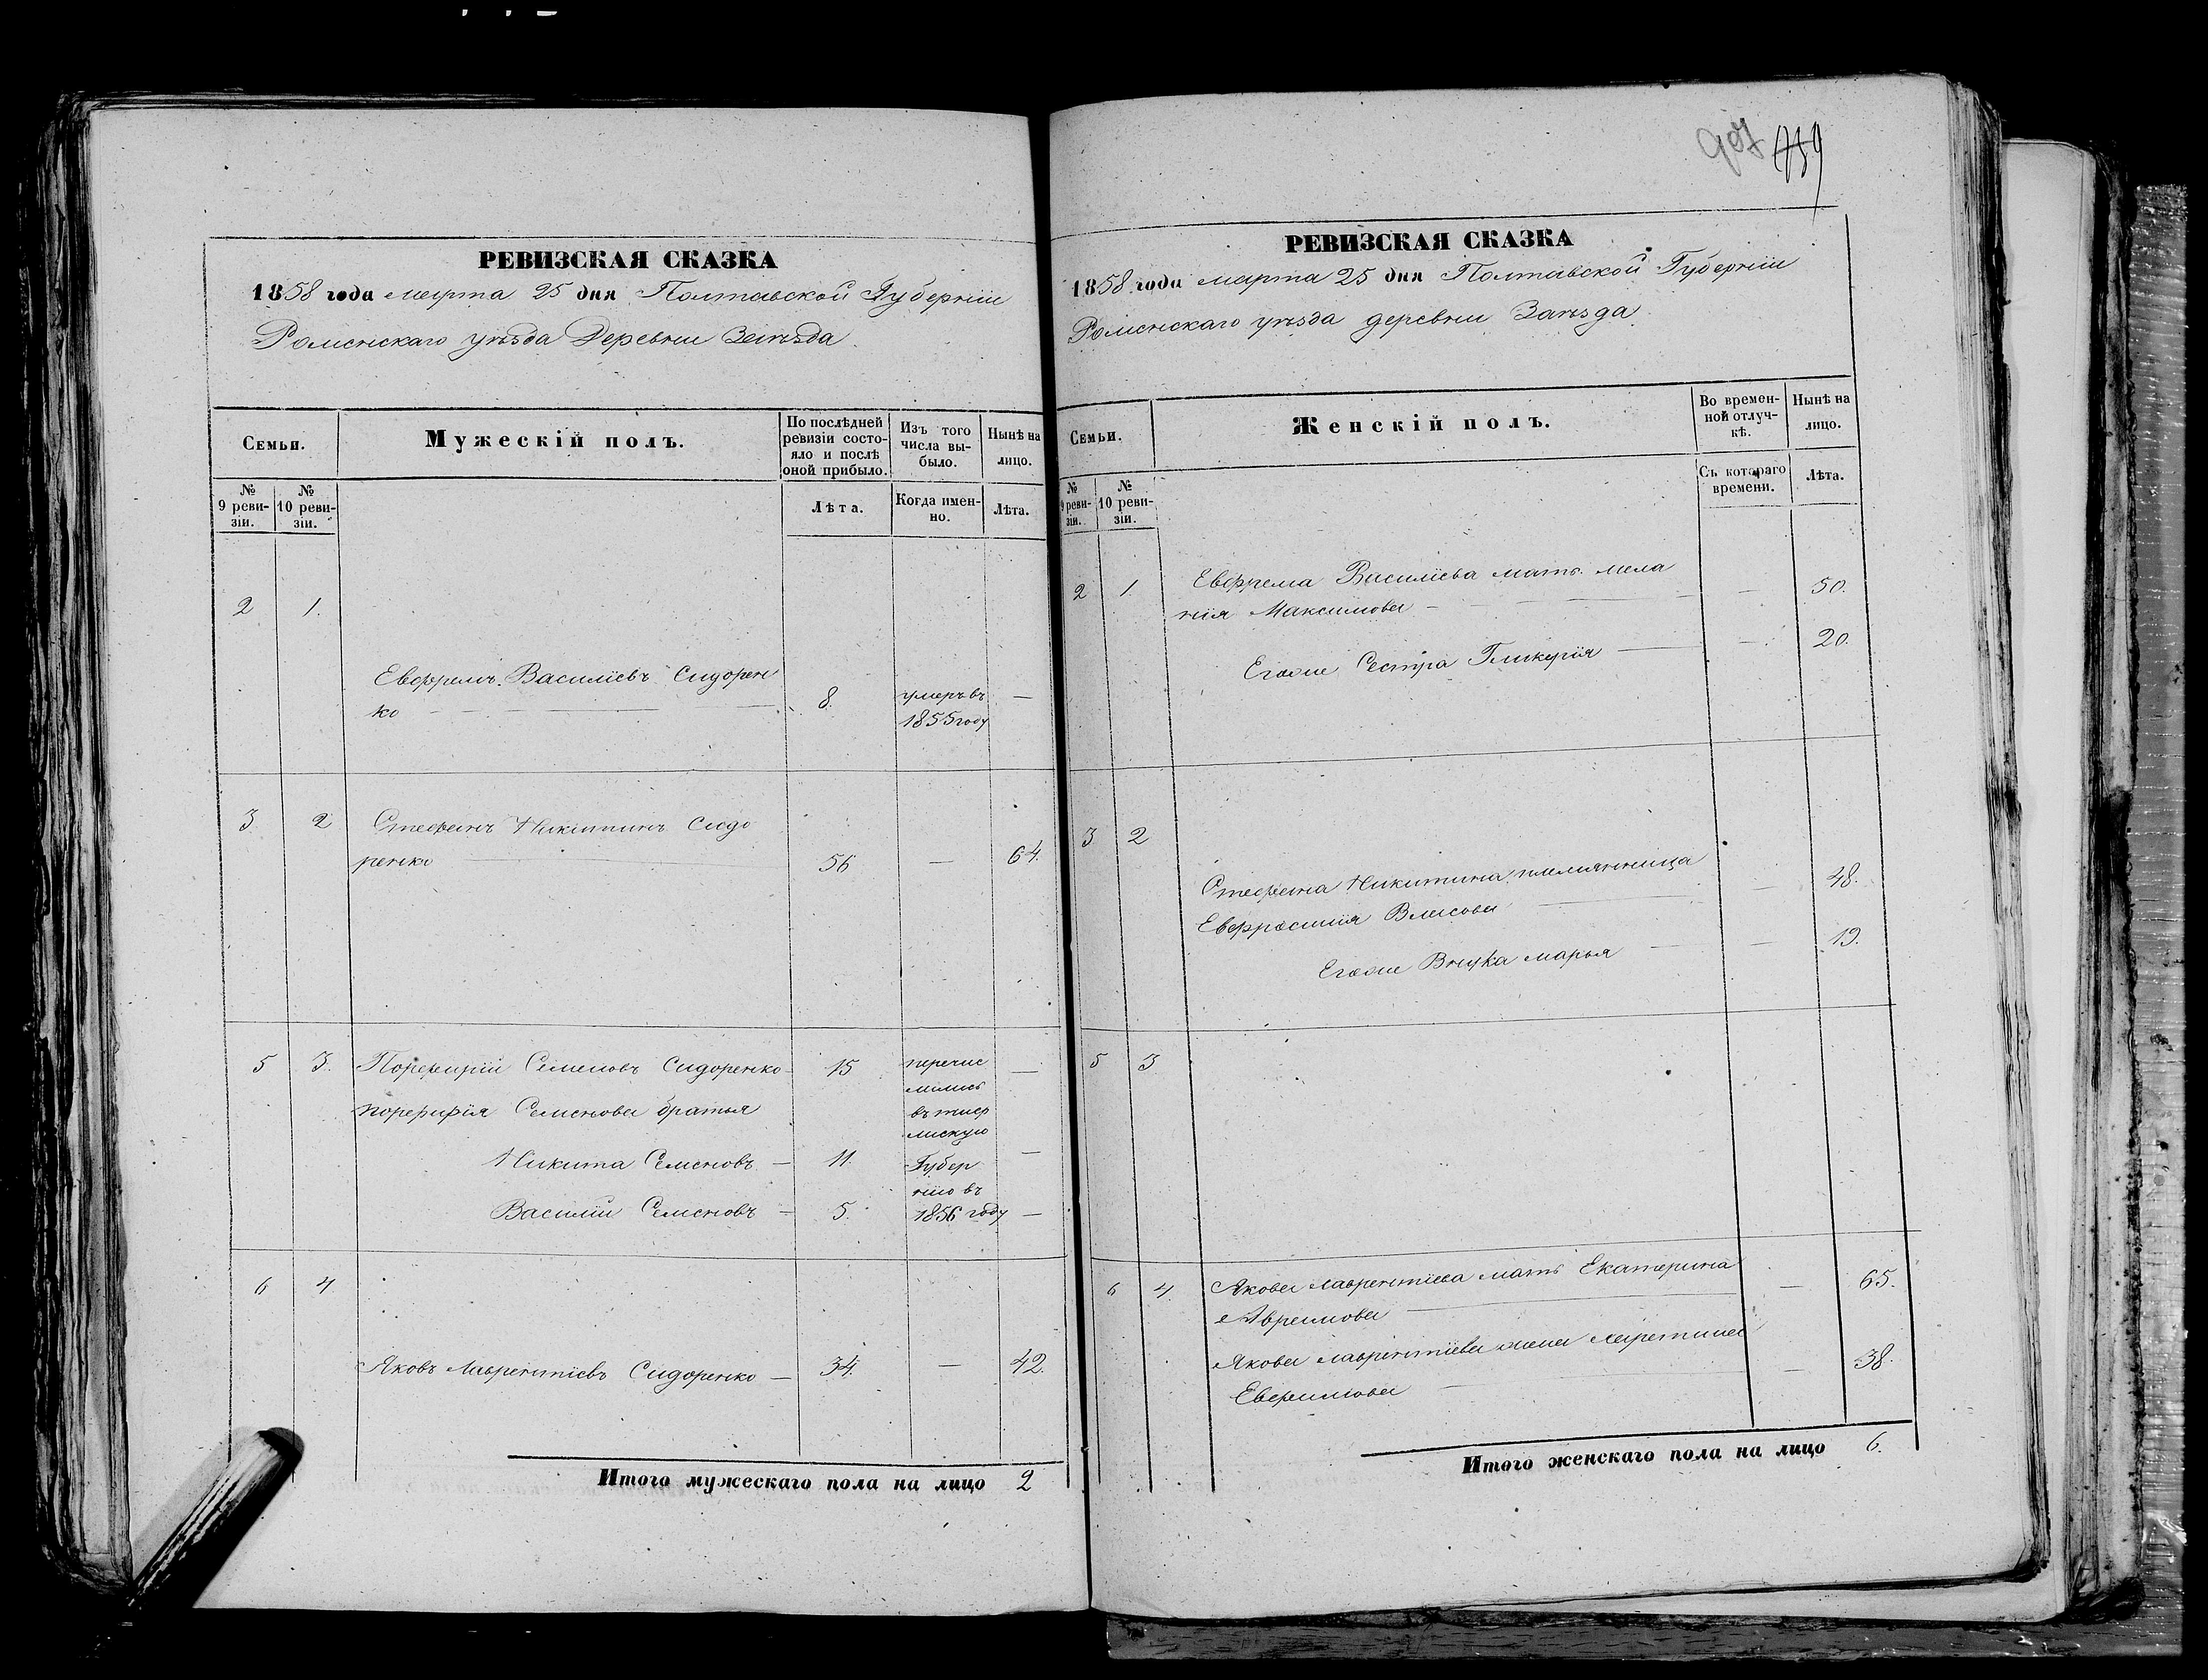 907 759
РЕВИЗСКАЯ СКАЗКА
1858 года марта 25 дня Полтавской Губерніи
Роменскаго уѣзда Деревни Заѣзда
Семьи.
Мужескій полъ.
По послѣдней ревизіи состояло и послѣ оной прибыло.
Изъ того числа выбыло.
Нынѣ на лицо.
№ 9 ревизіи.
№ 10 ревизіи.
Лѣта.
Когда именно.
Лѣта.
2 1.
Евфремъ Василіевъ Сидорен
ко 8. умеръ въ
1855 году —
3 2 Стефанъ Никитинъ Сидо
ренко 56 — 64.
5 3. Порфирій Семеновъ Сидоренко 15 перечис —
лились
порфирія Семенова братья въ
Никита Семеновъ — 11. Губер —
нію въ
Василій Семеновъ — 5. 1856 году —
6 4
Яковъ Лаврентіевъ Сидоренко — 34. — 42.
Итого мужескаго пола на лицо 2
РЕВИЗСКАЯ СКАЗКА
1858 года марта 25 дня Полтавской Губерніи
Роменскаго уѣзда деревни Заѣзда
Семьи.
Женскій полъ.
Во временной отлучкѣ.
Нынѣ на лицо.
№ 9 ревизіи.
№ 10 ревизіи.
Съ котораго времени.
Лѣта.
2 1. Евфрема Василіева мать мела
нія Максимова — — 50.
Егоже Сестра Гликерія — — 20.
3 2
Стефана Никитина племянница
Евфросинія Власова — — 48.
Егоже Внучка марья — — 19.
5 3
6 4. Якова Лаврентіева мать Екатерина
Аврамова — — 65.
Якова Лаврентіева жена
Евфимова — — 38.
Итого женскаго пола на лицо 6.